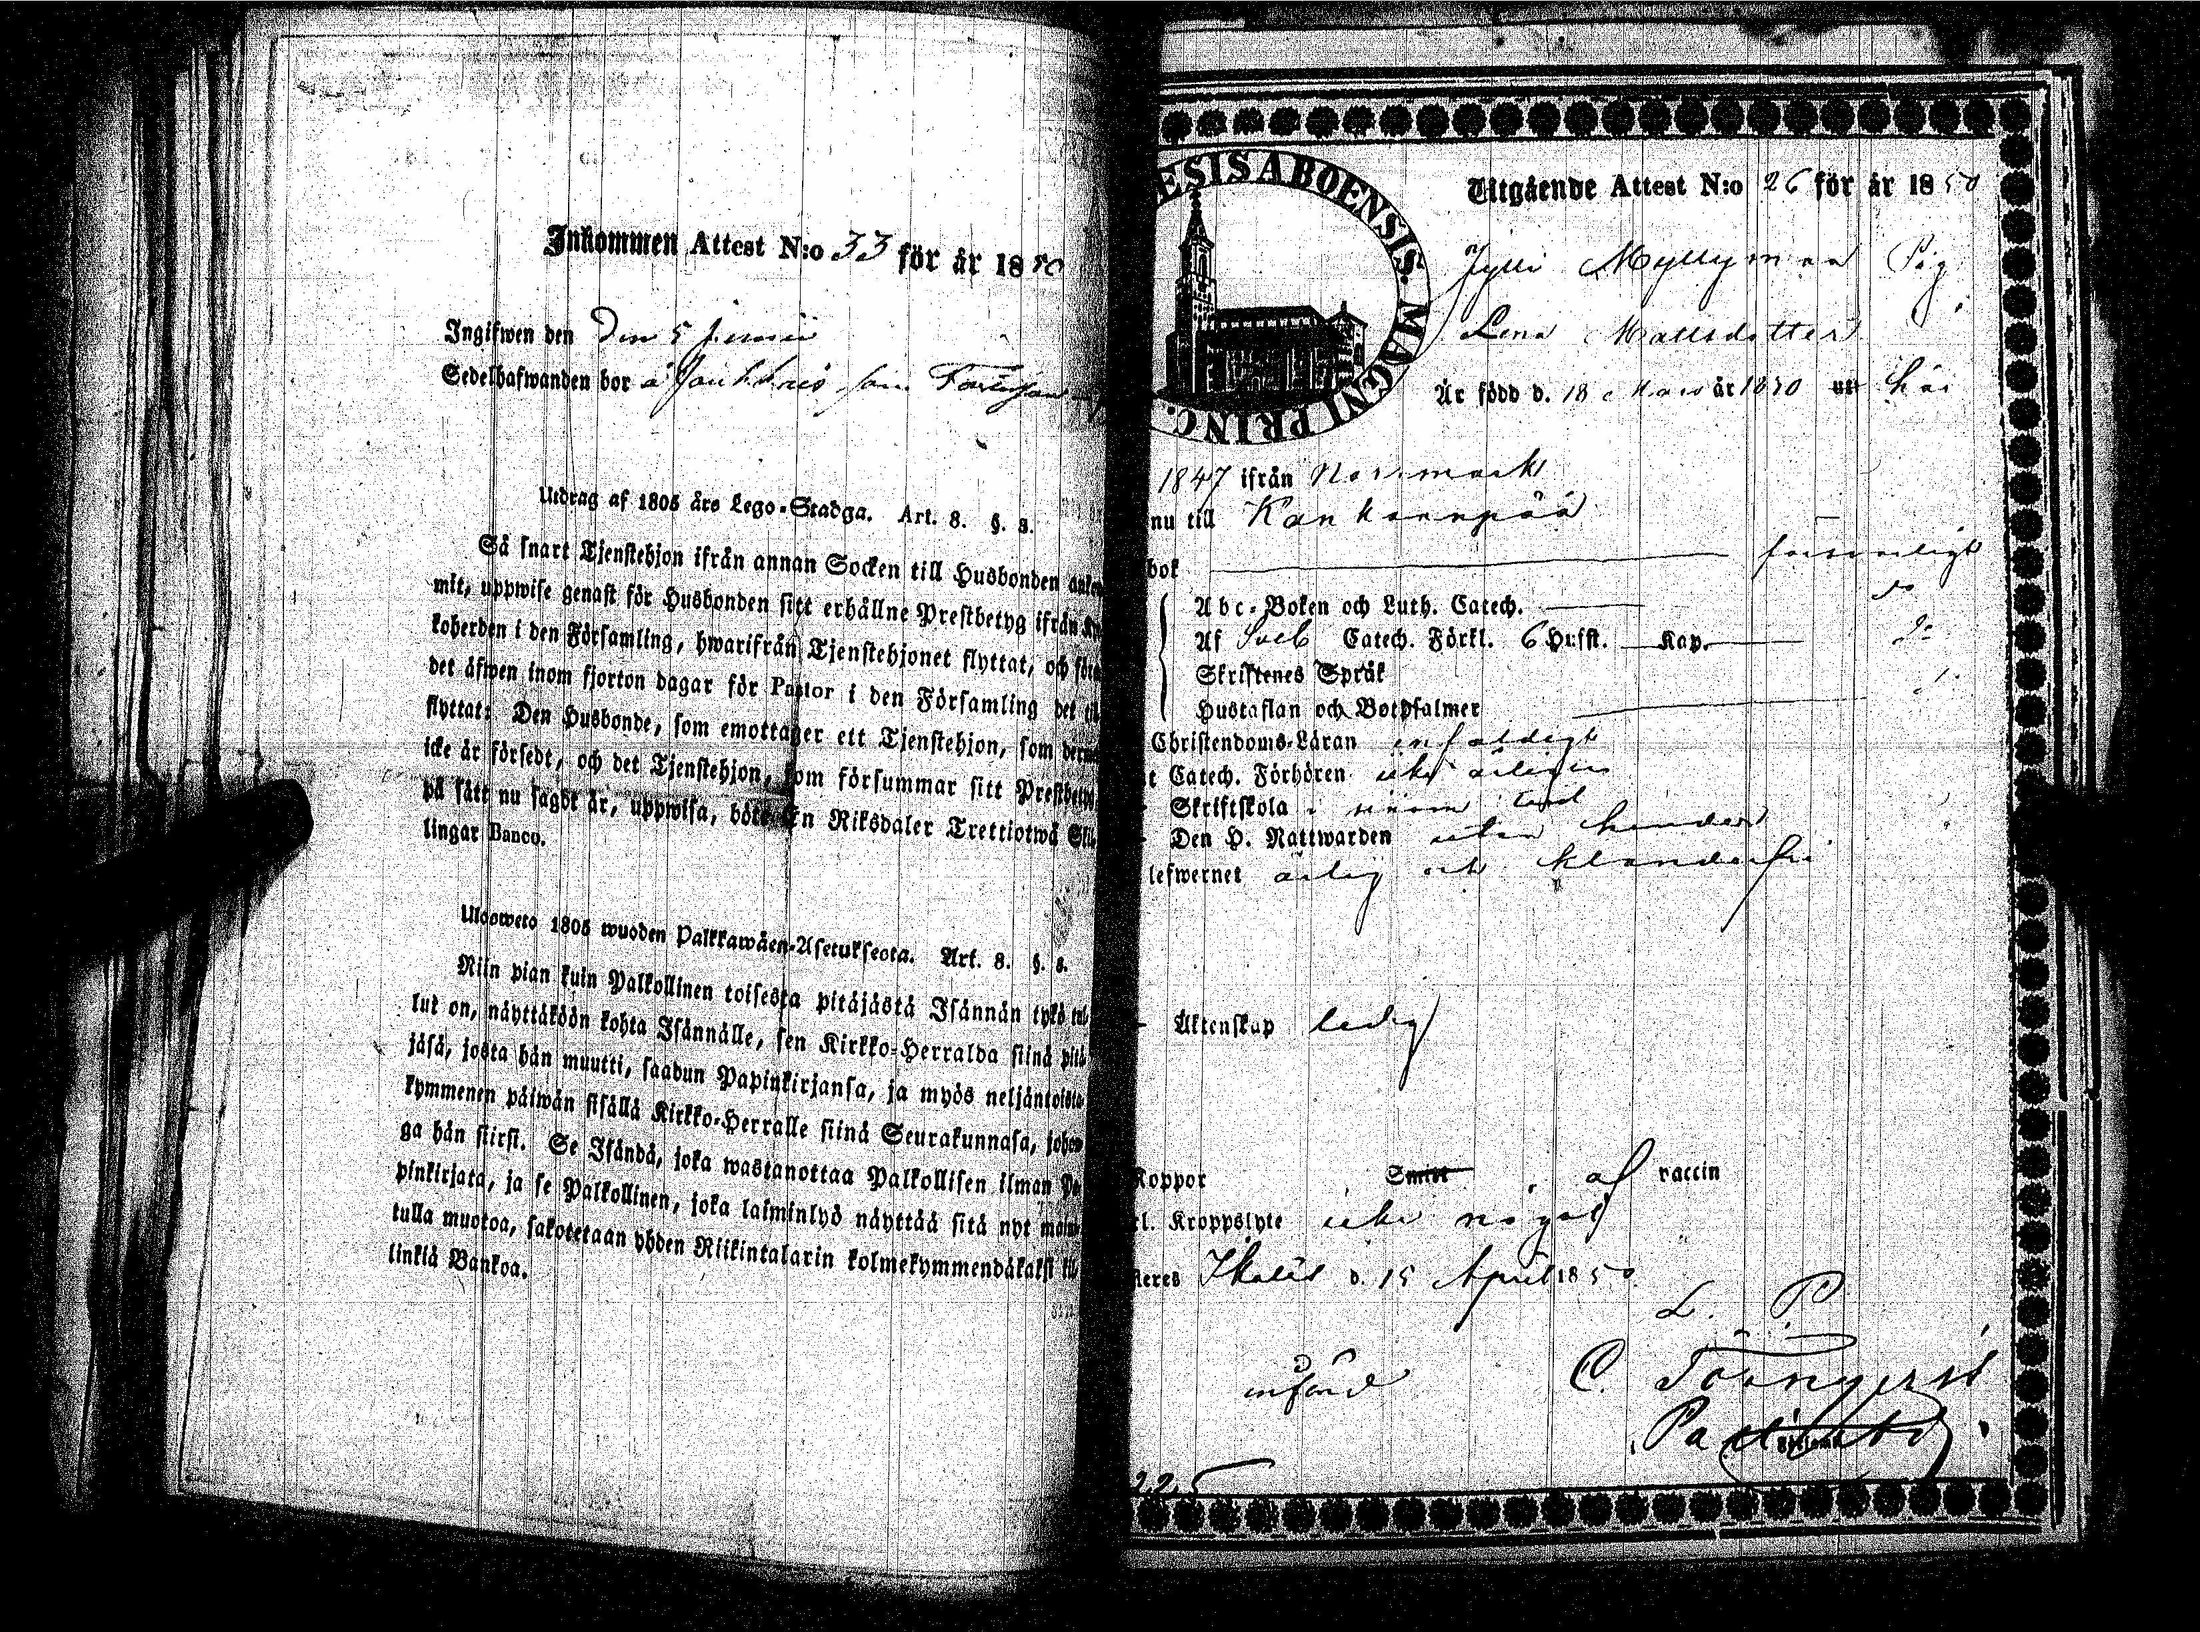 Inkommen Attest N:o 33 för år 1850
Ingifwen den Den 5 Junii
Sedelhafwanden bor å
Utdrag af 1805 års Lego-Stadga. Art. 8. §. 8.
Så snart Tjenstehjon ifrån annan Socken till Husbonden
mit, uppwise genast för Husbonden sitt erhållne Prestbetyg ifrån
koherden i den Församling, hwarifrån Tjenstehjonet flyttat, och
det äfwen inom fjorton dagar för Pastor i den Församling det
flyttat: Den Husbonde, som emottager ett Tjenstehjon, som
icke är försedt, och det Tjenstehjon, som försummar sitt Prestbetyg,
på sätt nu sagdt är, uppwisa, böte En Riksdaler Trettiotwå
lingar Banco.
Ulosweto 1805 wuoden Palkkawäen-Asetuksesta. Art. 8. §. 8.
Niin pian kuin Palkollinen toisesta pitäjästä Isännän tykö
lut on, näyttäköön kohta Isännälle, sen Kirkko-Herralda siinä
jäsä, josta hän muutti, saadun Papinkirjansa, ja myös
kymmenen päiwän sisällä Kirkko-Herralle siinä Seurakunnasa,
ga hän siirsi. Se Isändä, joka wastanottaa Palkollisen ilman
pinkirjata, ja se Palkollinen, joka laiminlyö näyttää sitä nyt
tulla muotoa, sakotetaan yhden Riikintalarin kolmekymmendäkaksi
linkiä Bankoa.
ESIS ABOENSIS. MAGNI PRINC.
Utgående Attest N:o 26 för år 1850
Jylli Myllymaa Pig
Lena Mattsdotter
Är född d. 18 Mars år 1830 här
1847 ifrån Norrmark
nu till Kankaanpää
bok försvarligt
Abc-Boken och Luth. Catech. do
Af Sveb Catech. Förkl. 6 Hufst. Kap.
Skriftenes Språk
Hustaflan och Botpsalmer
Christendoms-Läran enfaldigt
t Catech. Förhören
Skriftskola
Den H. Nattwarden utan hinder
lefwernet ärlig och klanderfri
Äktenskap ledig
Koppor af vaccin
Kroppslyte icke något
Ikalis d. 15 April 1850
L. P.
införd
C. Törnqvist
225